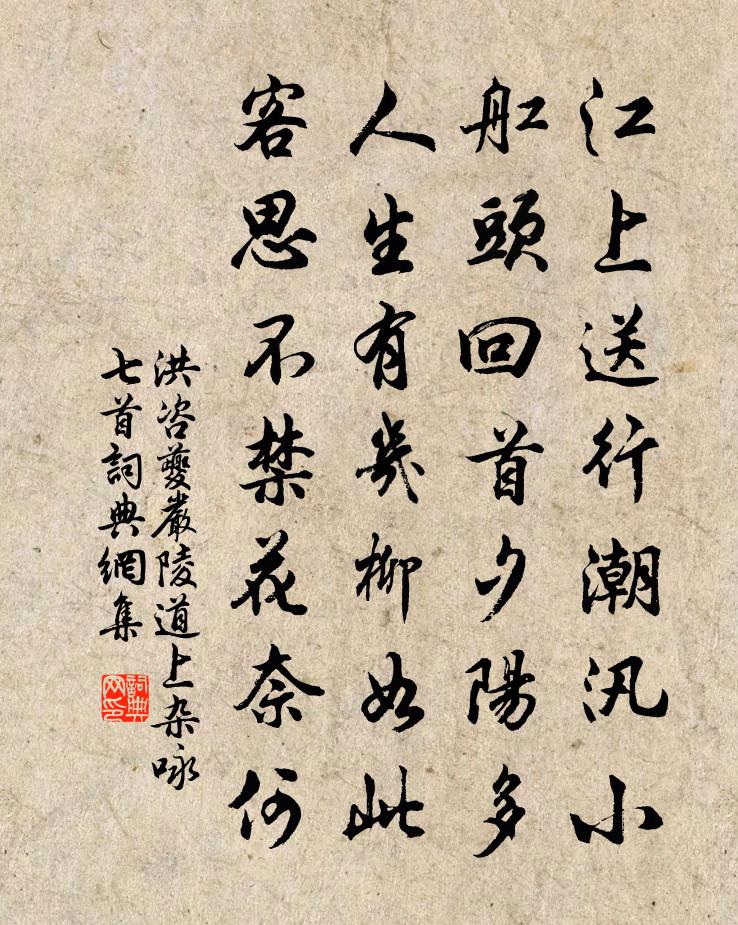 江上送行潮汛小
舡頭回首夕陽多
人生有幾柳如此
客思不禁花奈何
洪咨夔嚴陵道上杂咏
七首詞典網集
詞典
网印